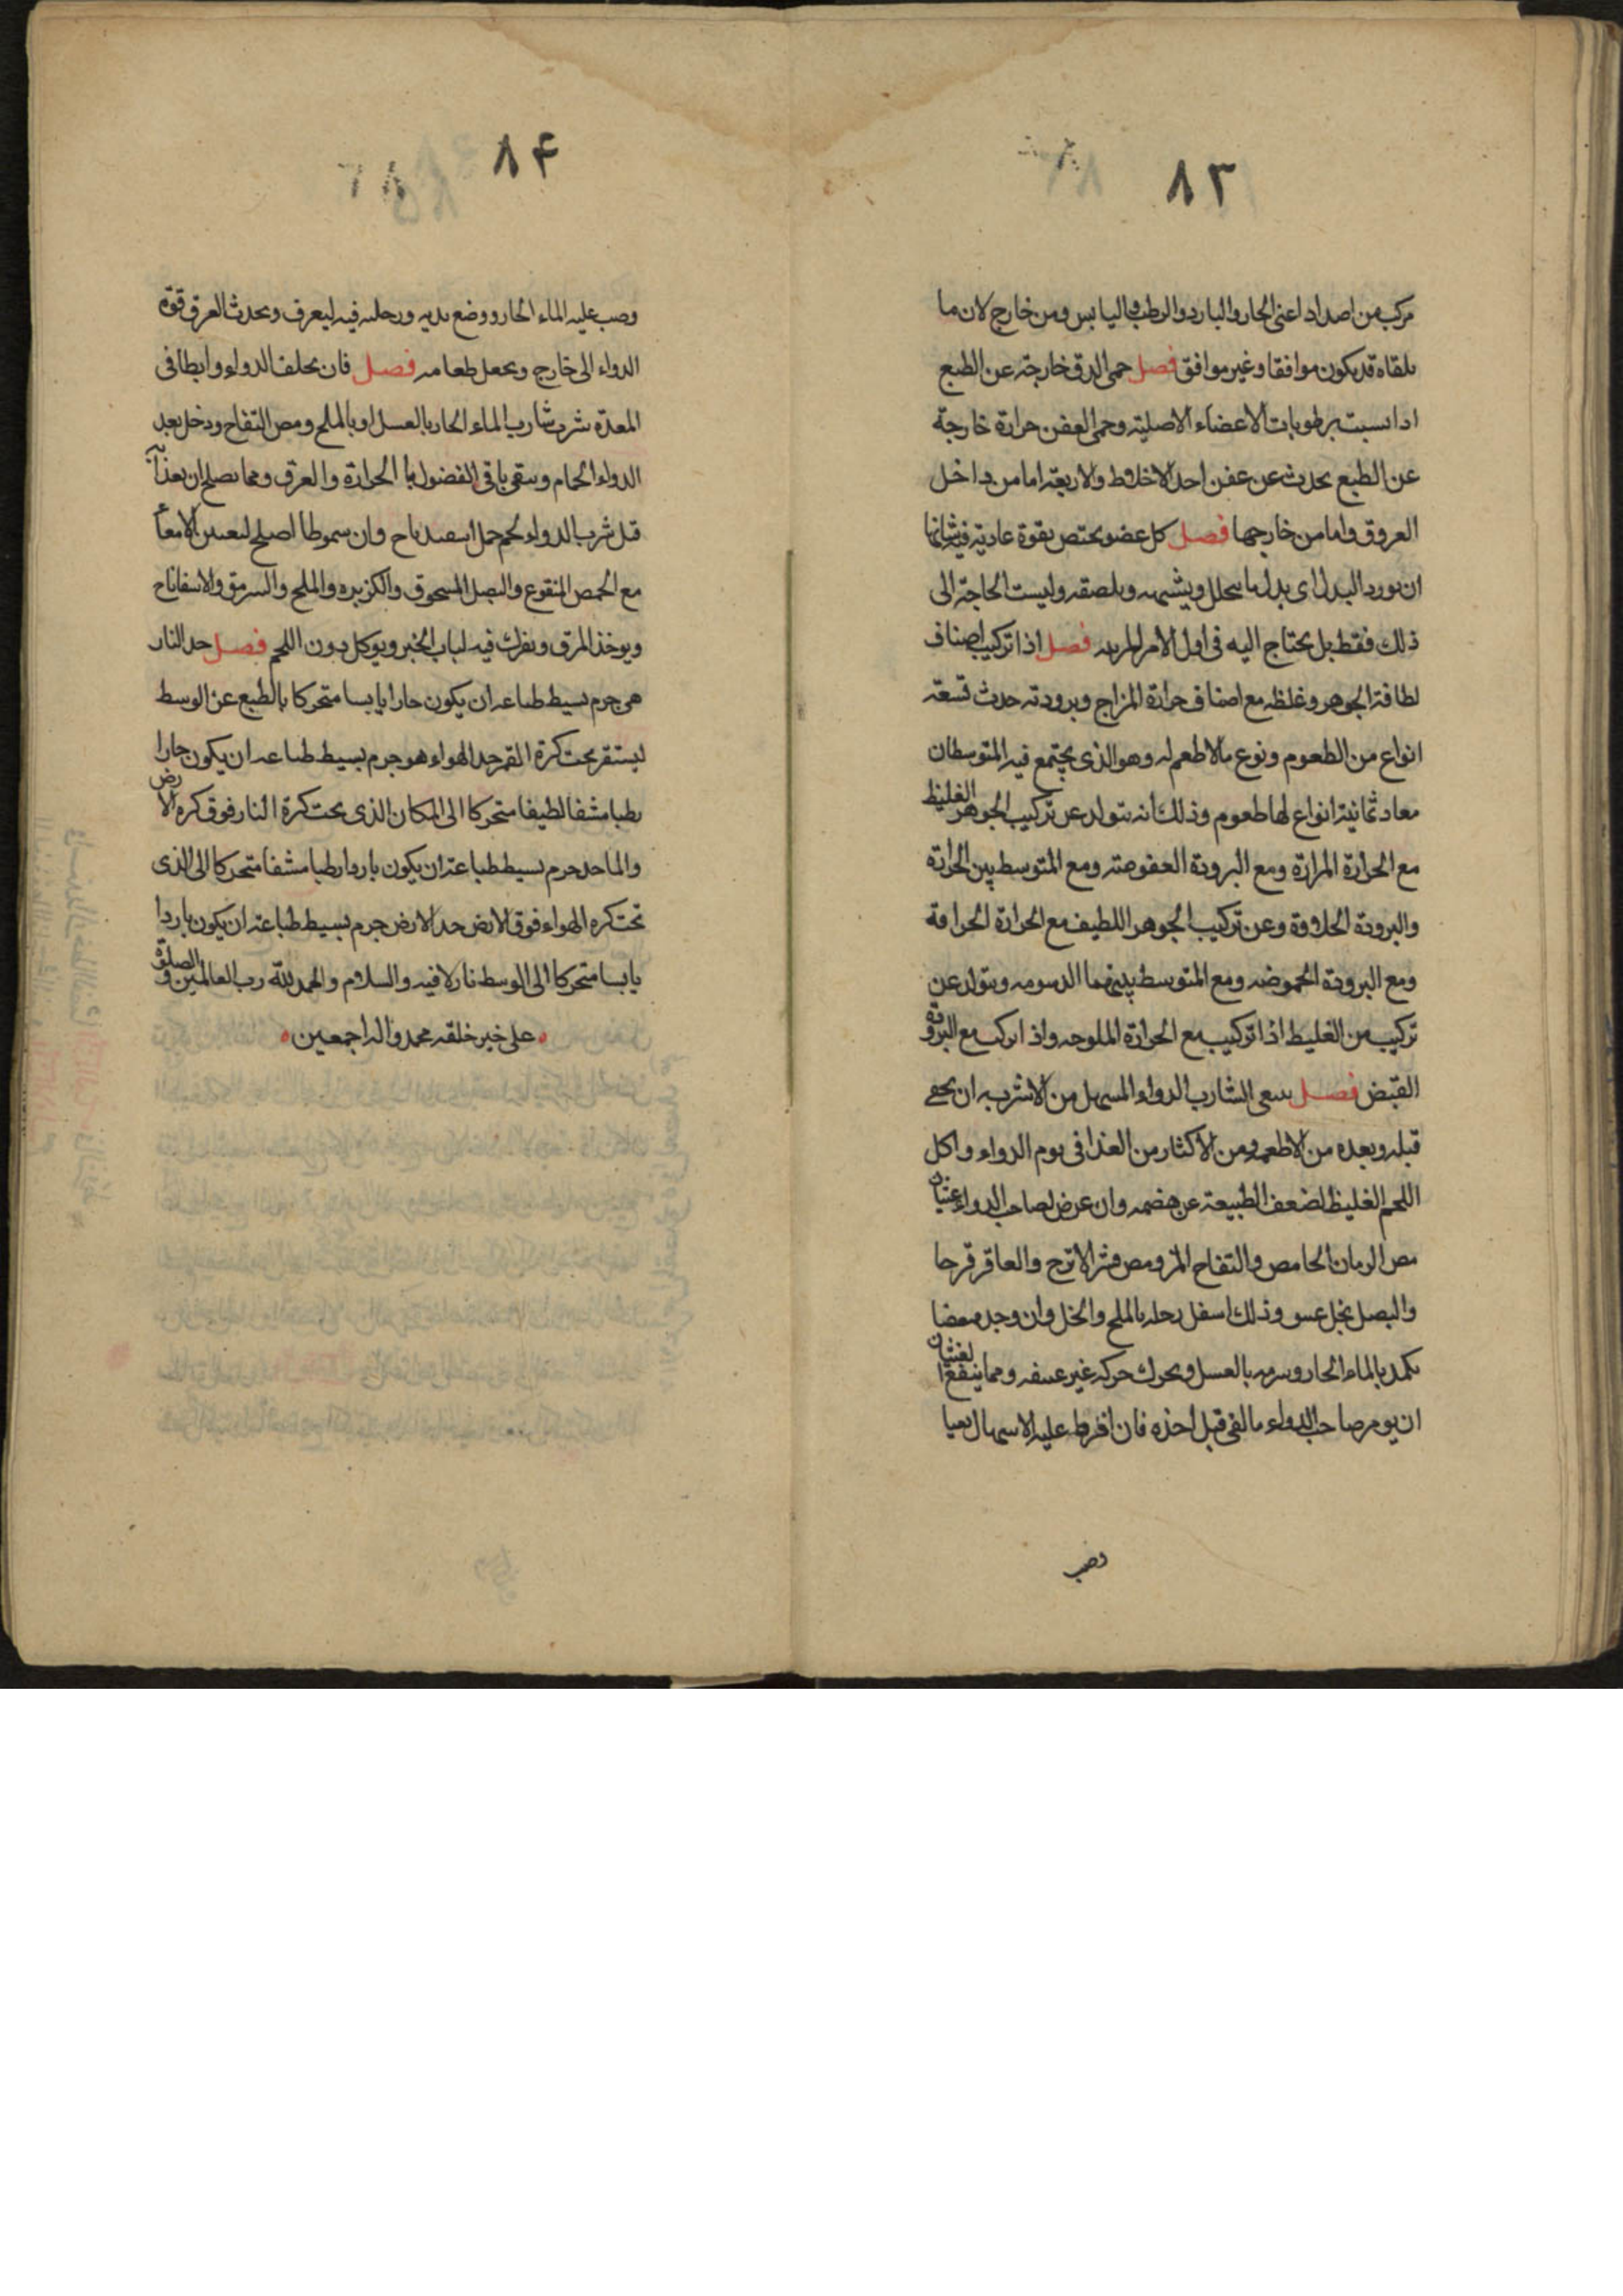 ٨٣
مركب من اضداد اعنى الحار والبارد والرطب واليابس ومن خارج لان ما
يلقاه قد يكون موافقا وغير موافق فصل حمى الدق خارجة عن الطبع
اذا نسبت برطوبات الاعضاء الاصلية وحمى العفن حرارة خارجة
عن الطبع يحدث عن عفن احد الاخلاط والاربعة اما من داخل
العروق واما من خارجها فصل كل عضو يختص بقوة عادية فيشانها
ان يورد البدل اى بدل ما يتحلل ويشبهه ويلصقه وليست الحاجة الى
ذلك فقط بل يحتاج اليه فى اول الامر فصل اذا تركيب اصناف
لطافة الجوهر وغلظه مع اصناف حرارة المزاج وبرودته حدث تسعة
انواع من الطعوم ونوع مالاطعم له وهو الذى يجتمع فيه المتوسطان
معاد ثمانية انواع لها طعوم وذلك انه يتولد عن تركيب الجوهر الغليظ
مع الحرارة المرارة ومع البرودة العفوصة ومع المتوسط بين الحرارة
والبرودة الحلاوة وعن تركيب الجوهر اللطيف مع الحرارة الحرافة
ومع البرودة الحموضه ومع المتوسط بينهما الدسومه ويتولد عن
تركيب من الغليط اذا تركيب مع الحرارة الملوحه واذا تركب مع البرودة
القبض فصل ينبغى الشارب الدواء المسهل من الاشربه ان يحمى
قبله وبعده من الاطعمه ومن الاكثار من الغذا فى يوم الدواء واكل
اللحم الغليظ لضعف الطبيعة عن هضمه وان عرض لصاحب الدواء غثيان
مص الرمان الحامض والتفاح المز ومص قشر الاترج والعاقر قرحا
والبصل بخل وذلك اسفل رجله بالملح والخل وان وجد مغصا
تكمد بالماء الحار وشربه بالعسل ويحرك حركة غير عنيفه ومما ينفع الغثيان
ان يومر صاحب الدواء بالقى قبل اخذه فان افرط عليه الاسهال
وصب
٨۴
وصب عليه الماء الحار ووضع يديه ورجليه فيه ليعرق ويحدث العرق قوة
الدواء الى خارج ويجعل طعامه فصل فان يخلف الدواء وابطا فى
المعدة شرب شارب الماء الحار بالعسل او بالملح ومص التفاح ودخل بعد
الدواء الحمام وينقى باقى الفضول با الحرارة والعرق ومما يصلح ان يغذا به
قبل شرب الدواء لحم حمل وان اصلح الامعآ
مع الحمص المنقوع والبصل المسحوق والكزبره والملح والسرمق والاسفاناح
ويوخذ المرق ويفرك فيه لباب الخبز ويوكل دون اللحم فصل حد النار
هى جرم بسيط طباعه ان يكون حارا يابسا متحركا بالطبع عن الوسط
ليستقر تحت كرة القمر حد الهواء هو جرم بسيط طباعه ان يكون حارا
رطبا مشفا لطيفا متحركا الى المكان الذى تحت كرة النار فوق كره الارض
والما حد جرم بسيط طباعة ان يكون باردا رطبا مشفا متحركا الى الذى
تحت كره الهواء فوق الارض حد الارض جرم بسيط طباعه ان يكون باردا
يابسا متحركا الى الوسط نازلا فيه والسلام والحمد لله رب العالمين والصلوة
على خير خلقه محمد واله اجمعين